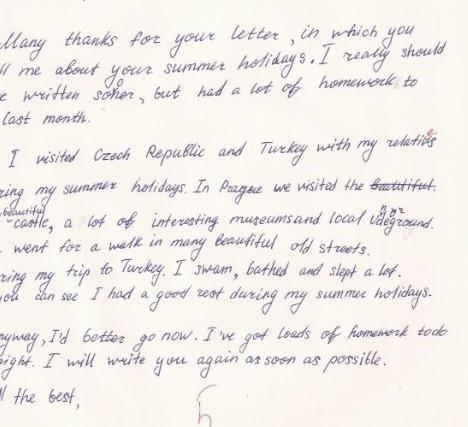 Many thanks for your letter, in which you
ll me about your summer holidays. I really should
e written soner, but had a lot of homework to
last month.
I visited Czech Republic and Turkey with my relatives
ring my summer holidays. In Prague we visited the beautiful
beautiful castle, a lot of interesting museums and local
went for a walk in many beautiful old streets.
ring my trip to Turkey. I swam, bathed and slept a lot.
you can see I had a good rest during my summer holidays.
nyway, I'd better go now. I've got loads of homework to do
night. I will write you again as soon as possible.
ll the best,
5